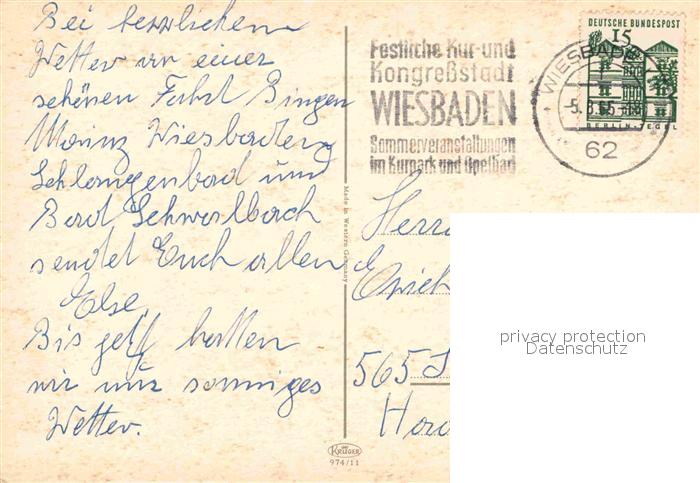 Bei herrlichem
Wetter an einer
schönen Fahrt Bingen
Mainz Wiesbaden
Schlangenbad und
Bad Schwalbach
sendet Euch allen
Else.
Bis jetzt hatten
wir nur sonniges
Wetter.
Made in Western Germany
KRÜGER
974/11
Festliche Kur-und
Kongreßstadt
WIESBADEN
Sommerveranstaltungen
im Kurpark und Opelbad
WIESBADEN
62
DEUTSCHE BUNDESPOST
15
BERLIN-TEGEL
Herrn
Erich
565 S
privacy protection
Datenschutz